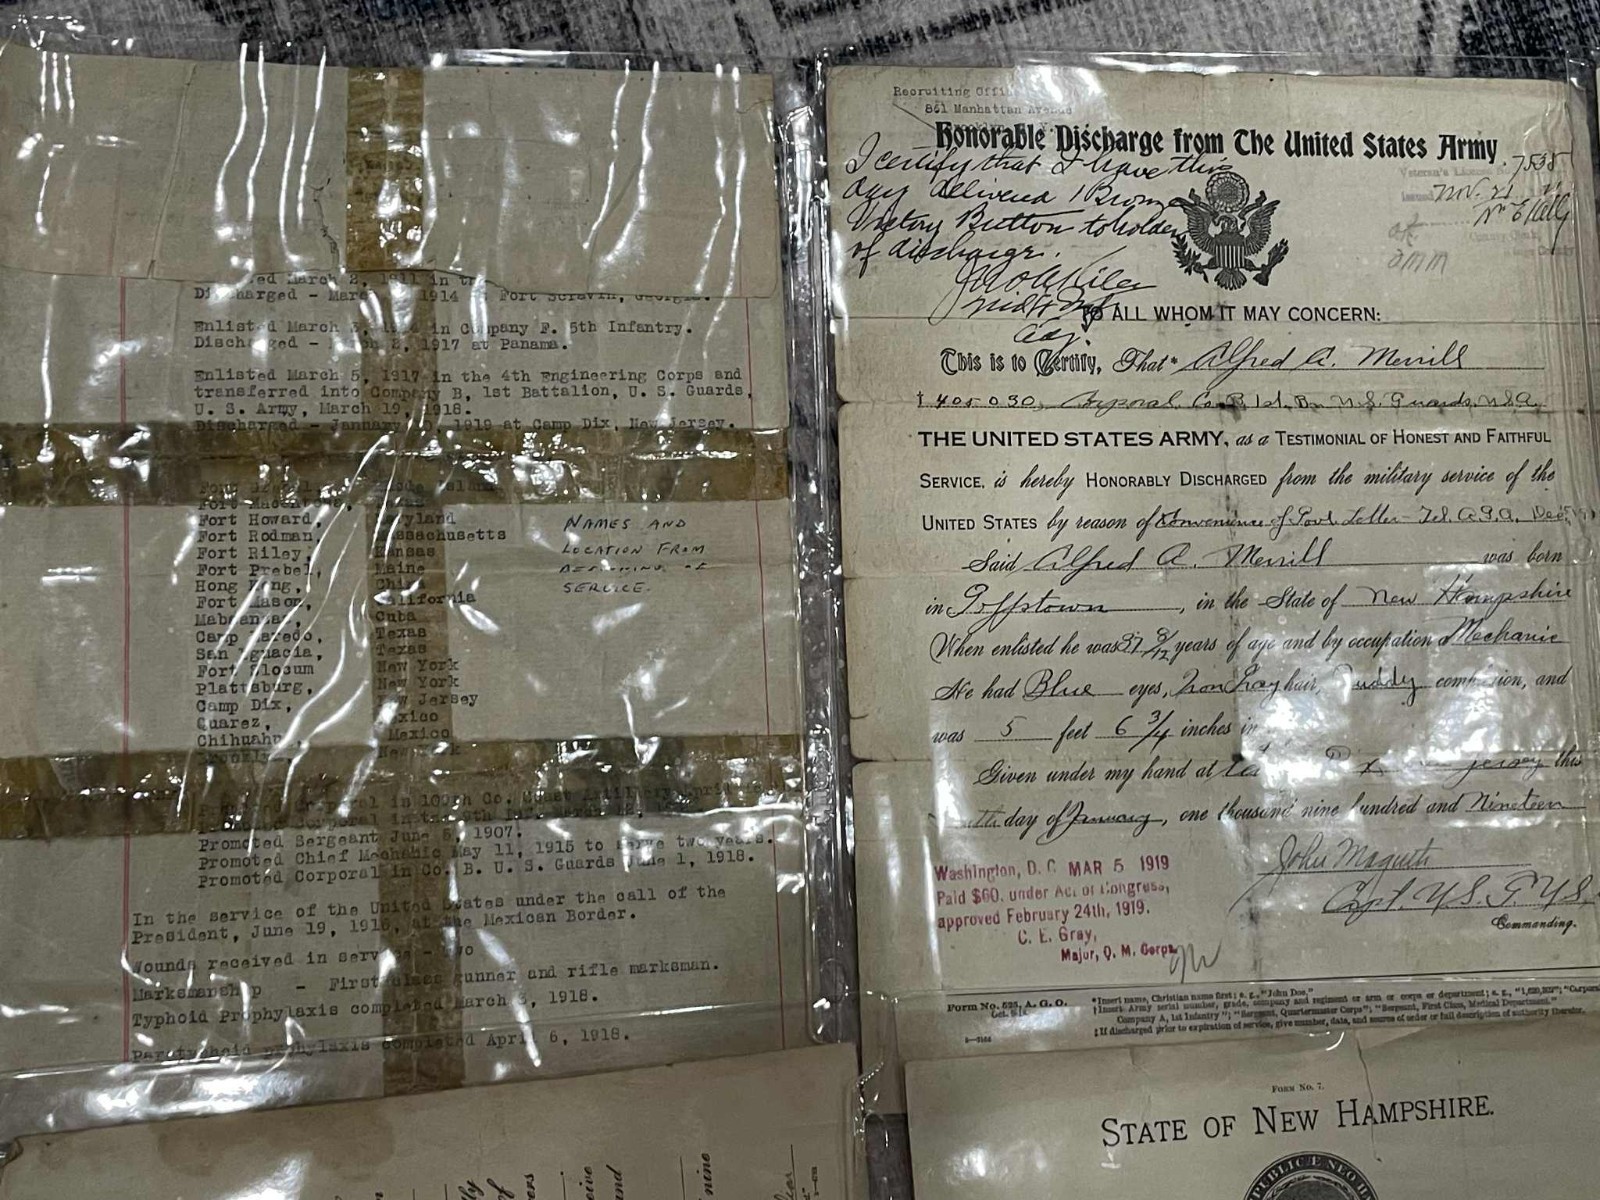 ed March 2, 1911 in
Discharged - 1914 Fort Georgia.
Enlisted March in Company F. 5th Infantry.
Discharged - March 2, 1917 at Panama.
Enlisted March 5, 1917 in the 4th Engineering Corps and
transferred into Company B, 1st Battalion, U. S. Guards,
U. S. Army, March 19, 1918.
Discharged - January 1919 at Camp Dix, New Jersey.
Fort Island
Fort
Fort Howard, Maryland
Fort Rodman, Massachusetts
Fort Riley, Kansas
Fort Prebel, Maine
Hong Kong, China
Fort Mason, California
Cuba
Camp Laredo, Texas
San Ignacia, Texas
Fort Slocum New York
Plattsburg, New York
Camp Dix, New Jersey
Quarez, Mexico
Chihuahua, Mexico
Brooklyn, New York
NAMES AND
LOCATION FROM
BEGINNING OF
SERVICE.
Corporal in 100th Co. Coast Artillery
Promoted Corporal in
Promoted Sergeant June 6, 1907.
Promoted Chief Mechanic May 11, 1915 to serve two years.
Promoted Corporal in Co. B. U. S. Guards June 1, 1918.
In the service of the United States under the call of the
President, June 19, 1916, at the Mexican Border.
Wounds received in service - Two
Marksmanship - First class gunner and rifle marksman.
Typhoid Prophylaxis completed March 3, 1918.
Paratyphoid prophylaxis completed April 6, 1918.
Recruiting Office
861 Manhattan Avenue
Honorable Discharge from The United States Army
I certify that I have this
day delivered 1 Bronze
Victory Button to holder
of discharge.
7538
Nov. 21
TO ALL WHOM IT MAY CONCERN:
This is to Certify, That* Alfred A. Merrill
† 405 030, Corporal, Co. B 1st. Bn. U.S. Guards, U.S.A.
THE UNITED STATES ARMY, as a TESTIMONIAL OF HONEST AND FAITHFUL
SERVICE, is hereby HONORABLY DISCHARGED from the military service of the
UNITED STATES by reason of Convenience of Govt. Letter
Said Alfred A. Merrill was born
in Goffstown, in the State of New Hampshire
When enlisted he was 37 9/12 years of age and by occupation a Mechanic
He had Blue eyes, Iron Gray hair, Ruddy complexion, and
was 5 feet 6 3/4 inches in
Given under my hand at Dix New Jersey this
day of January, one thousand nine hundred and Nineteen
John
Capt. U.S.
Commanding.
Washington, D. C. MAR 5 1919
Paid $60. under Act of Congress,
approved February 24th, 1919.
C. E. Gray,
Major, Q. M. Corps
Form No. 525, A. G. O.
*Insert name, Christian name first; e. g., "John Doe."
†Insert Army serial number, grade, company and regiment or arm or corps or department; e. g., "1,620,302"; "Corporal
Company A, 1st Infantry"; "Sergeant, Quartermaster Corps"; "Sergeant, First Class, Medical Department."
‡If discharged prior to expiration of service, give number, date, and source of order or full description of authority therefor.
FORM NO. 7.
STATE OF NEW HAMPSHIRE.